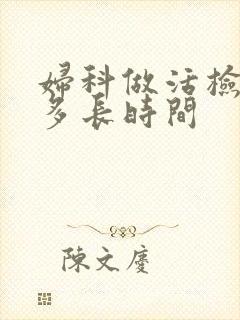 婦科做活檢
多長時間
陳文慶